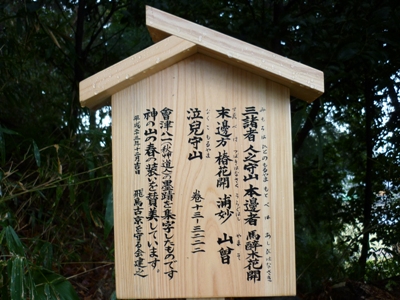 三諸者 人之守山 本邊者 馬酔木花開
末邊方 椿花開 浦妙 山曽
泣兒守山 巻十三-三二二二
會津八一(秋艸道人)の墨蹟を集字したものです
神の山の春の装いを賛美しています。
平成二三年十二月吉日 飛鳥古京を守る会建之